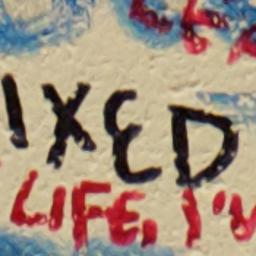 IXED
LIFE, I'V